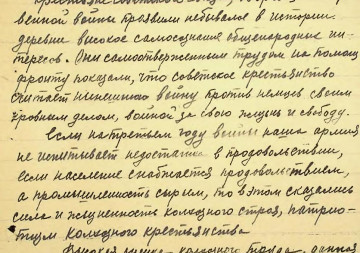 венной войны проявили небывалое в истории
деревни высокое самосознание общенародных ин-
тересов. Они самоотверженным трудом на помощь
фронту показали, что советское крестьянство
считает нынешнюю войну против немцев своим
кровным делом, войной за свою жизнь и свободу.
Если на третьем году войны наша армия
не испытывает недостатка в продовольствии,
если население снабжается продовольствием,
а промышленность сырьем, то в этом сказались
сила и жизненность колхозного строя, патрио-
тизм колхозного крестьянства
Высокая колхозного